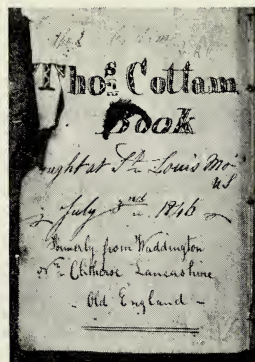 Thos Cottam
Book
ought at St Louis Mo
US
July 3rd 1846
Formerly from Waddington
Nr Clitheroe Lancashire
Old England